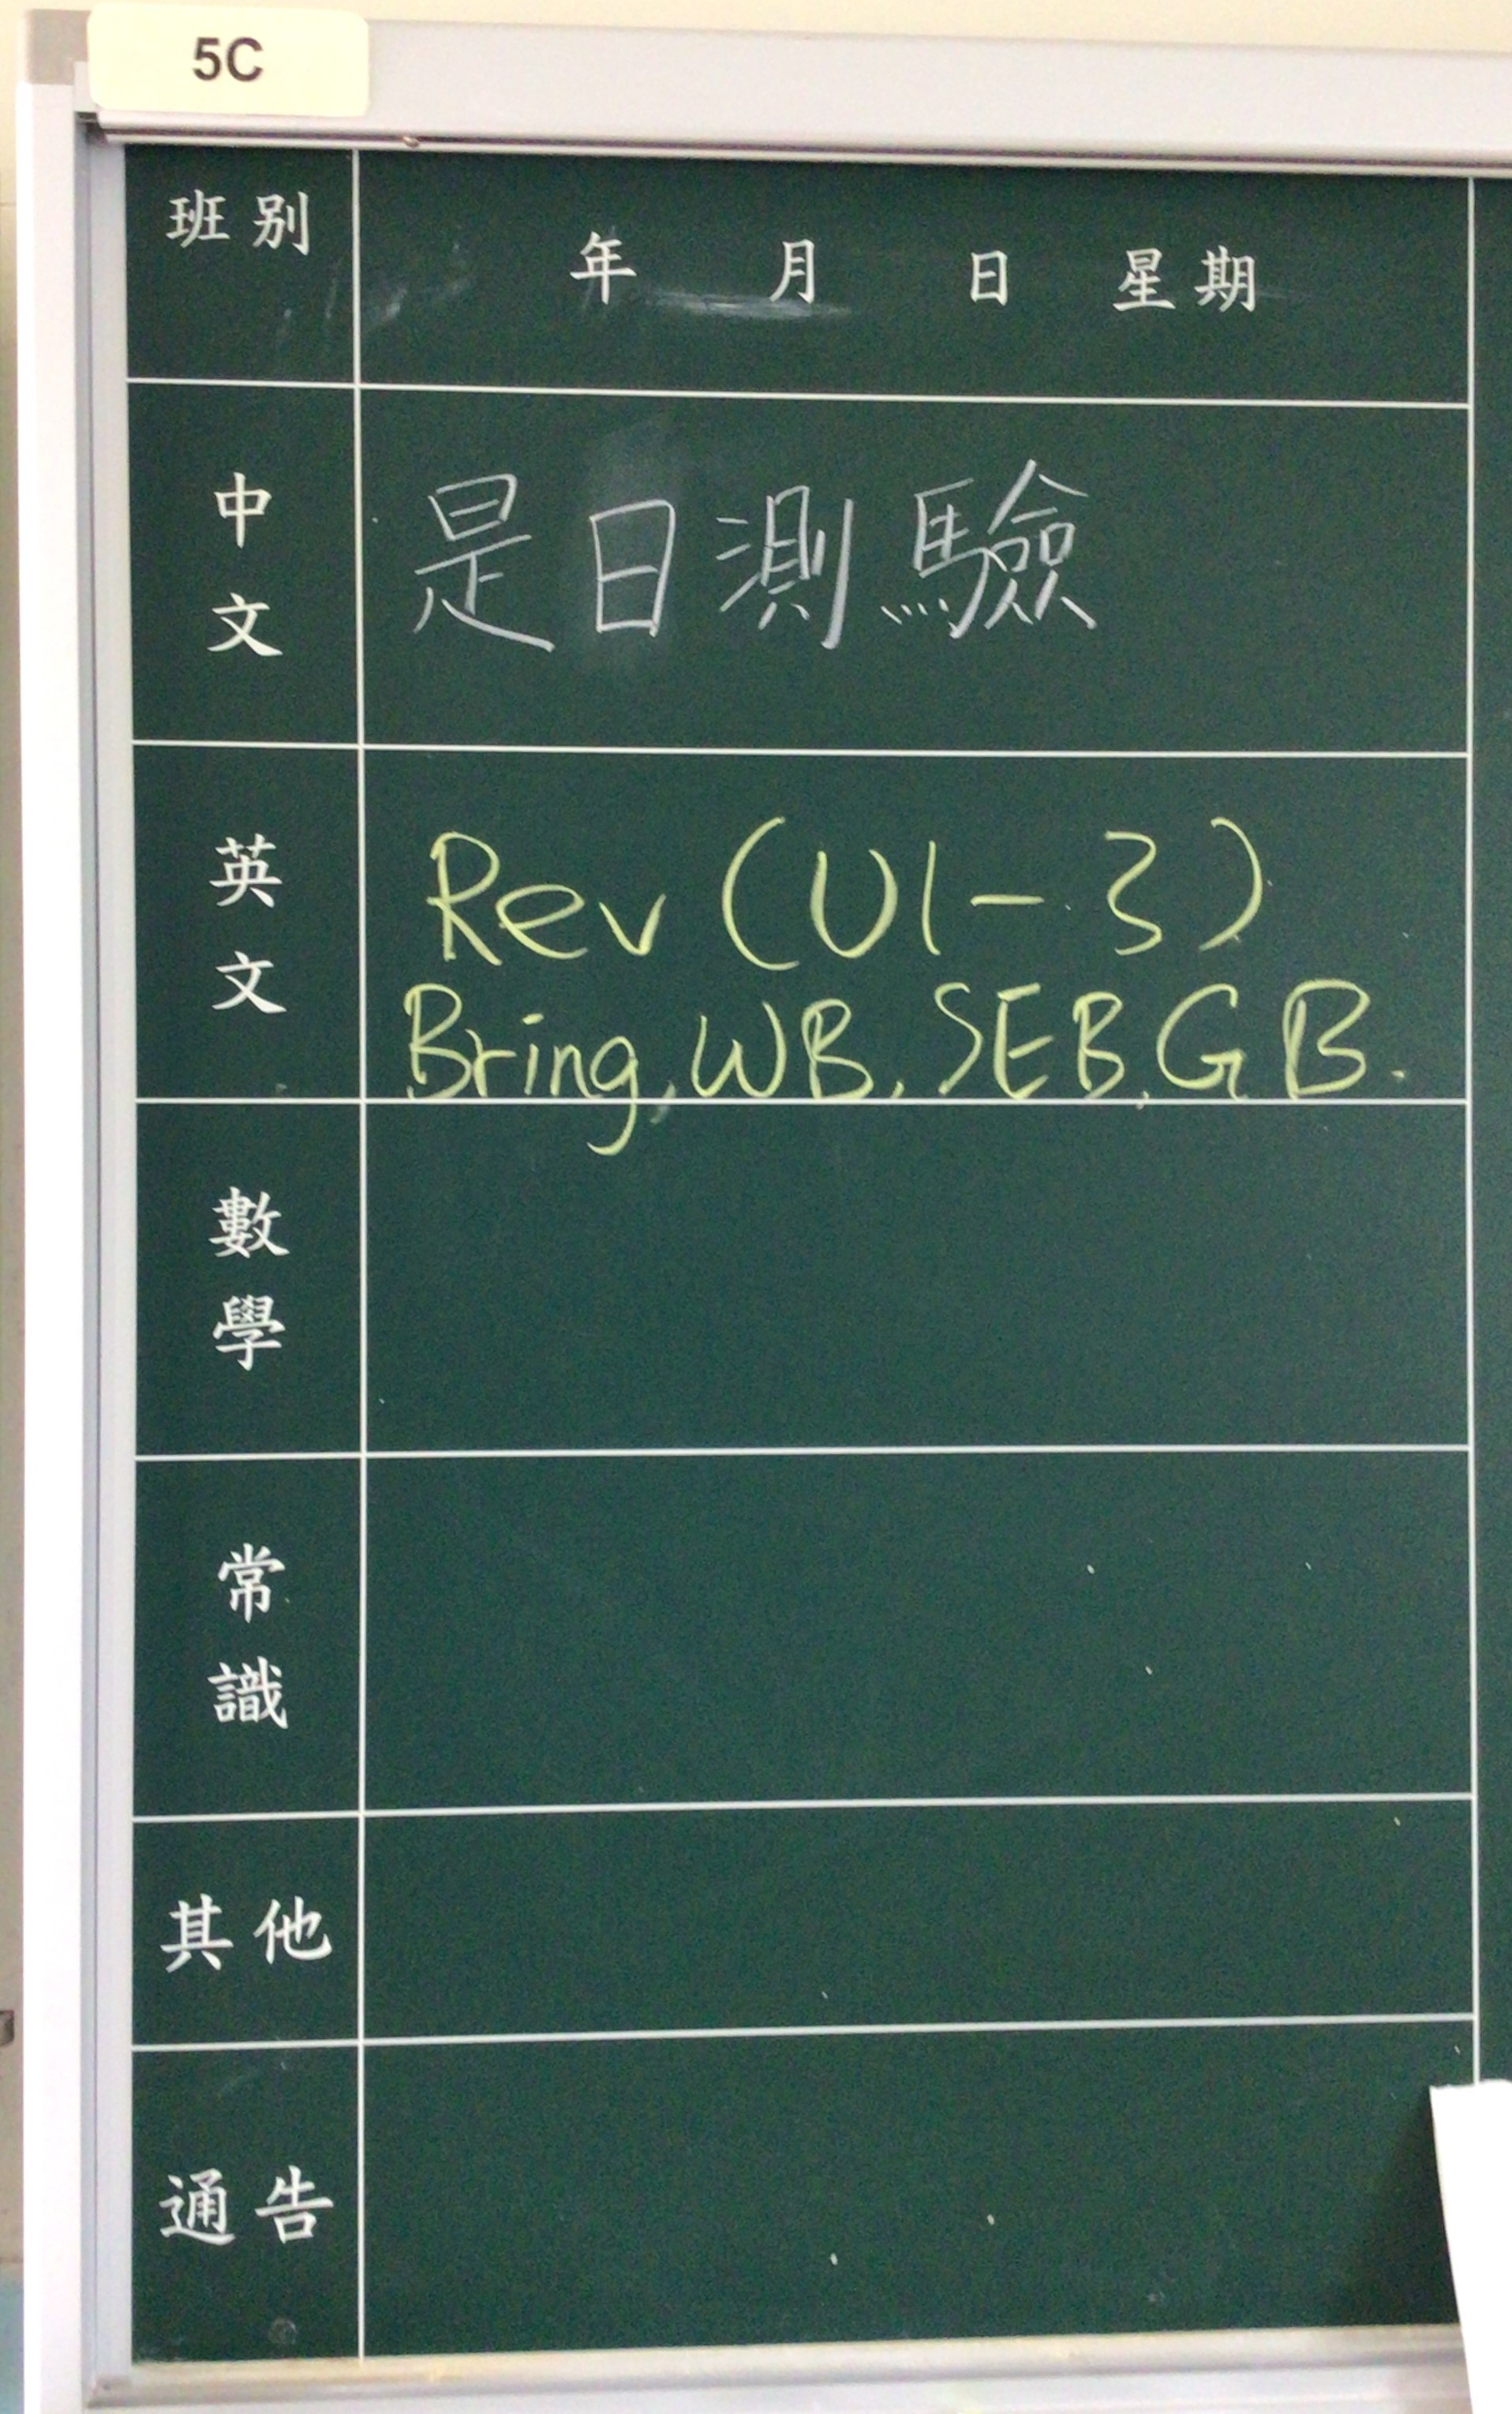 5C
班別
年 月 日 星期
中文
是日測驗
英文
Rev (U1-3)
Bring, WB, SEB, GB.
數學
常識
其他
通告